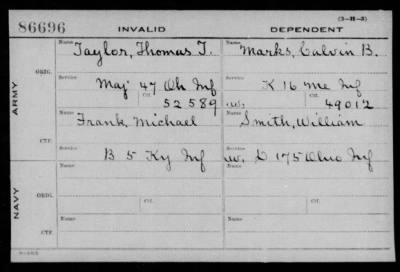 (3-H-3)
86696 INVALID DEPENDENT
Name Taylor, Thomas T. Name Marks, Calvin B.
ARMY
ORIG. Service Maj 47 Oh Inf Service K 16 Me Inf
Ctf. 52589 W. Ctf. 49012
Name Frank, Michael Name Smith, William
CTF. Service B 5 Ky Inf Service W. D 175 Ohio Inf
NAVY
Name Name
ORIG. Service Ctf. Service Ctf.
Name Name
CTF. Service Service